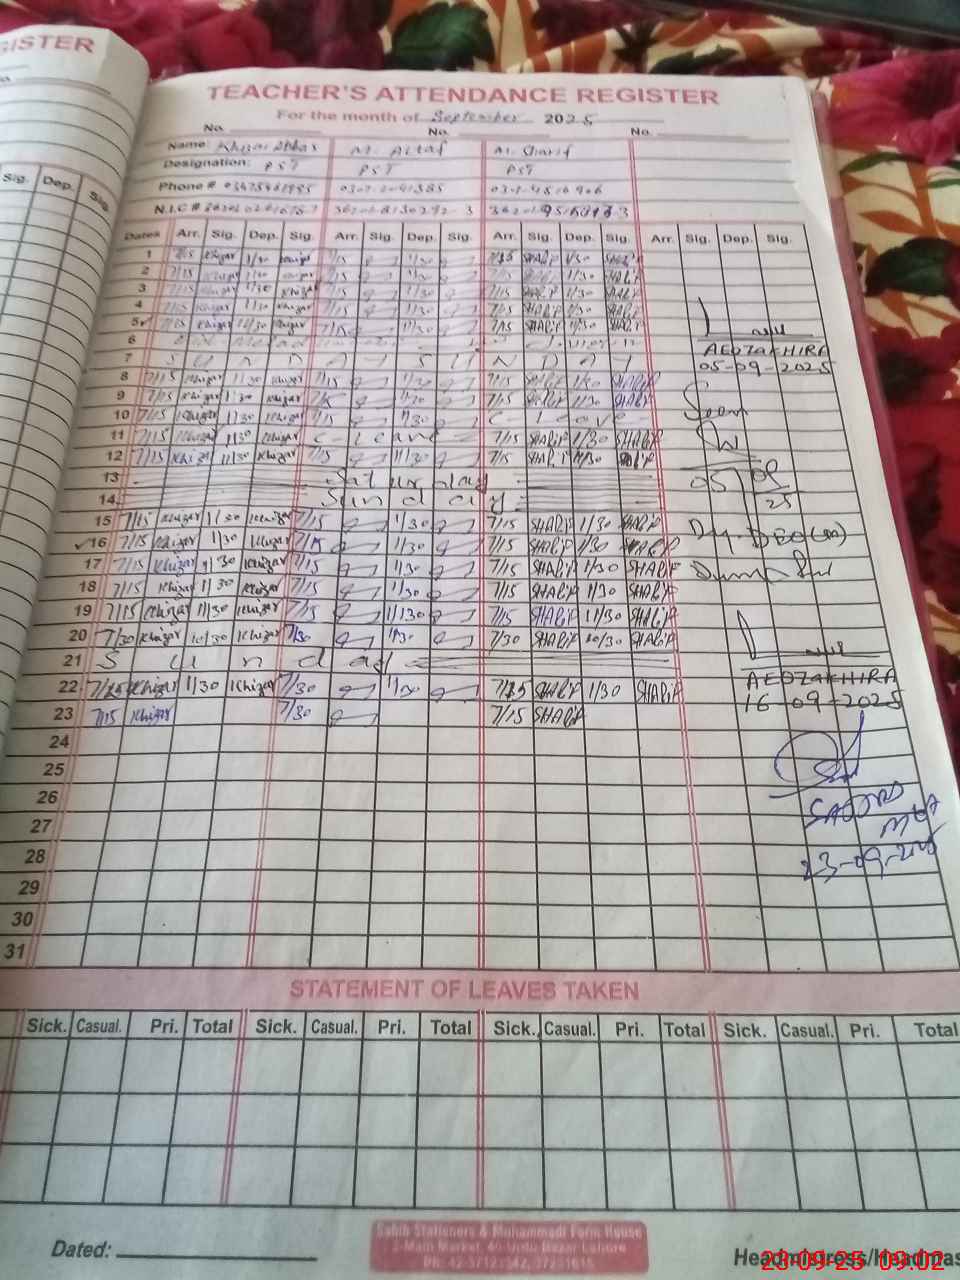 GISTER
TEACHER'S ATTENDANCE REGISTER
For the month of September 2025
No. No. No.
Name: Khizar Abbas M. Altaf M. Sharif
Designation: PST PST PST
Phone #
N.I.C #
Sig. Dep. Sig.
Dates Arr. Sig. Dep. Sig. Arr. Sig. Dep. Sig. Arr. Sig. Dep. Sig. Arr. Sig. Dep. Sig.
1 7/15 Khizar 1/30 Khizar 7/15 1/30 7/15 SHARiF 1/30 SHARiF
2 7/15 Khizar 1/30 Khizar 7/15 1/30 7/15 SHARiF 1/30 SHARiF
3 7/15 Khizar 1/30 Khizar 7/15 1/30 7/15 SHARiF 1/30 SHARiF
4 7/15 Khizar 1/30 Khizar 7/15 1/30 7/15 SHARiF 11/30 SHARiF
5 7/15 Khizar 11/30 Khizar 7/15 11/30 7/15 SHARiF 11/30 SHARiF
6
AEOZAKHIRA
7 S U N D A Y S U N D A Y
05-09-2025
8 7/15 Khizar 1/30 Khizar 7/15 1/30 7/15 SHARiF 1/30 SHARiF
9 7/15 Khizar 1/30 Khizar 7/15 1/30 7/15 SHARiF 1/30 SHARiF
Seen
10 7/15 Khizar 1/30 Khizar 7/15 1/30 C - Leave
11 7/15 Khizar 1/30 Khizar C - Leave 7/15 SHARiF 1/30 SHARiF
12 7/15 Khizar 11/30 Khizar 7/15 11/30 7/15 SHARiF 11/30 SHARiF
13 Saturday
05/09/25
14 Sunday
15 7/15 Khizar 1/30 Khizar 7/15 1/30 7/15 SHARiF 1/30 SHARiF
Dy. DEO (M)
16 7/15 Khizar 1/30 Khizar 7/15 1/30 7/15 SHARiF 1/30 SHARiF
17 7/15 Khizar 1/30 Khizar 7/15 1/30 7/15 SHARiF 1/30 SHARiF
18 7/15 Khizar 1/30 Khizar 7/15 1/30 7/15 SHARiF 1/30 SHARiF
19 7/15 Khizar 11/30 Khizar 7/15 11/30 7/15 SHARiF 11/30 SHARiF
20 7/30 Khizar 10/30 Khizar 7/30 7/30 SHARiF 10/30 SHARiF
21 S u n d a y
AEOZAKHIRA
22 7/15 Khizar 1/30 Khizar 7/30 7/15 SHARiF 1/30 SHARiF
16-09-2025
23 7/15 Khizar 7/30 7/15 SHARiF
24
25
26
27
28
23-09-2025
29
30
31
STATEMENT OF LEAVES TAKEN
Sick. Casual. Pri. Total Sick. Casual. Pri. Total Sick. Casual. Pri. Total Sick. Casual. Pri. Total
Sahib Stationers & Muhammadi Form House
2-Main Market, 40-Urdu Bazar Lahore
Dated:
Headmistress/Headmas
23-09-25 09:02